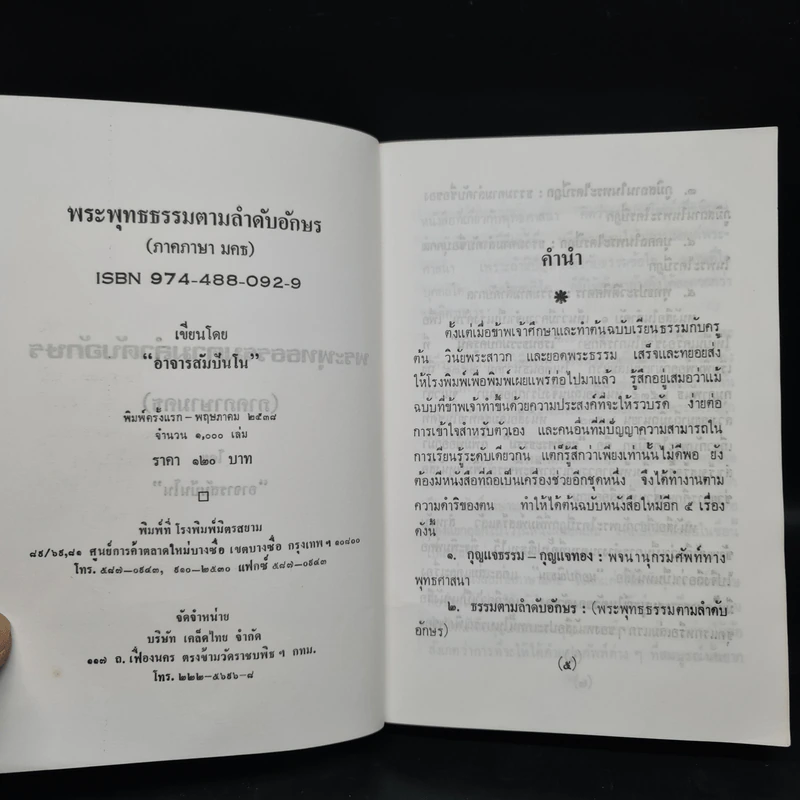 พระพุทธธรรมตามลำดับอักษร
(ภาคภาษา มคธ)
ISBN 974-488-092-9
เขียนโดย
“อาจารสัมปันโน”
พิมพ์ครั้งแรก – พฤษภาคม ๒๕๓๘
จำนวน ๑,๐๐๐ เล่ม
ราคา ๑๒๐ บาท
พิมพ์ที่ โรงพิมพ์มิตรสยาม
๘๙/๖๙,๘๑ ศูนย์การค้าตลาดใหม่บางซื่อ เขตบางซื่อ กรุงเทพฯ ๑๐๘๐๐
โทร. ๕๘๗-๐๙๔๓, ๙๑๐-๒๕๓๐ แฟกซ์ ๕๘๗-๐๙๔๓
จัดจำหน่าย
บริษัท เคล็ดไทย จำกัด
๑๑๗ ถ. เฟื่องนคร ตรงข้ามวัดราชบพิธ ฯ กทม.
โทร. ๒๒๒-๕๖๙๖-๘
คำนำ
ตั้งแต่เมื่อข้าพเจ้าศึกษาและทำต้นฉบับเรียนธรรมกับครู
ต้น วินัยพระสาวก และยอดพระธรรม เสร็จและทยอยส่ง
ให้โรงพิมพ์เพื่อพิมพ์เผยแพร่ต่อไปมาแล้ว รู้สึกอยู่เสมอว่าแม้
ฉบับที่ข้าพเจ้าทำขึ้นด้วยความประสงค์ที่จะให้รวบรัด ง่ายต่อ
การเข้าใจสำหรับตัวเอง และคนอื่นที่มีปัญญาความสามารถใน
การเรียนรู้ระดับเดียวกัน แต่ก็รู้สึกว่าเพียงเท่านั้นไม่ดีพอ ยัง
ต้องมีหนังสือที่ถือเป็นเครื่องช่วยอีกชุดหนึ่ง จึงได้ทำงานตาม
ความดำริของตน ทำให้ได้ต้นฉบับหนังสือใหม่อีก ๕ เรื่อง
ดังนี้
๑. กุญแจธรรม – กุญแจทอง : พจนานุกรมศัพท์ทาง
พุทธศาสนา
๒. ธรรมตามลำดับอักษร : (พระพุทธธรรมตามลำดับ
อักษร)
(๕)